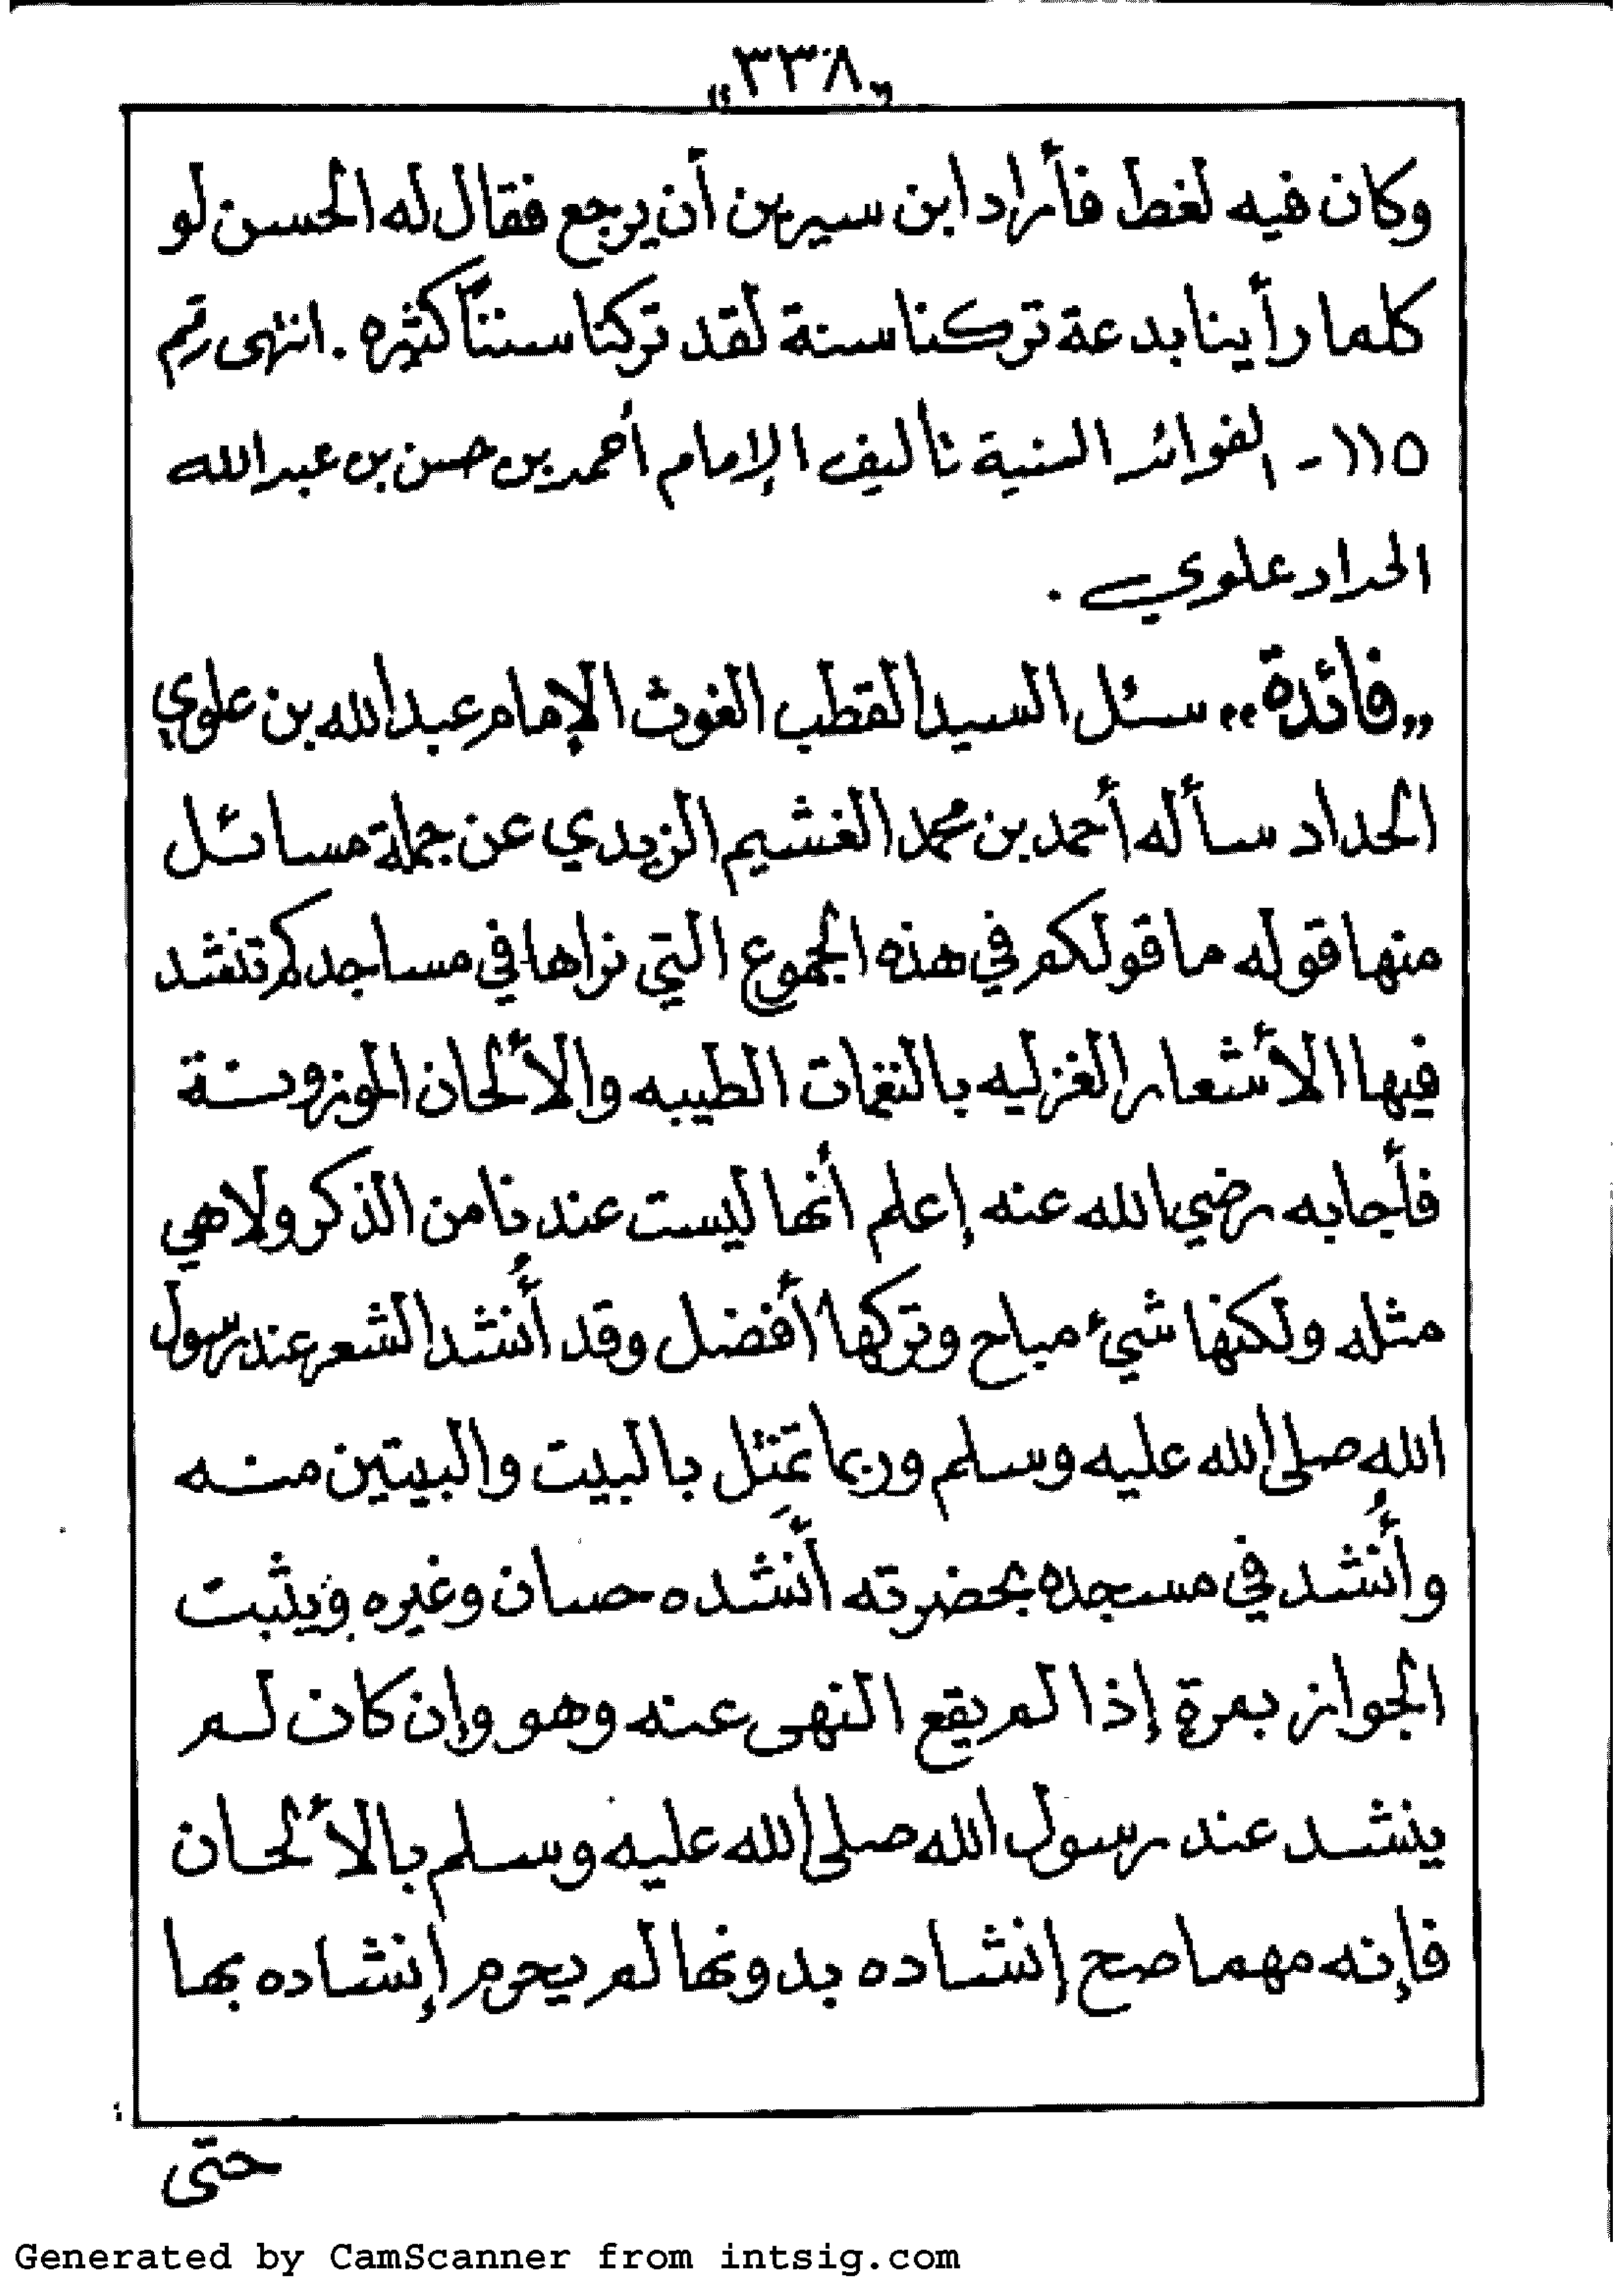 „٣٣٨„
وكان فيه لغط فأراد ابن سيرين أن يرجع فقال له الحسن لو
كلما رأينا بدعة تركنا سنة لقد تركنا سنناً كثيره . انتهى رقم
١١٥ - الفوائد السنية تأليف الإمام أحمد بن حسن بن عبد الله
الحداد علوي .
„فائدة„ سئل السيد القطب الغوث الإمام عبد الله بن علوي
الحداد سأله أحمد بن محمد الغشيم الزيدي عن جملة مسائل
منها قوله ما قولكم في هذه الجموع التي نراها في مساجدكم تنشد
فيها الأشعار الغزليه بالنغمات الطيبه والألحان الموزونة
فأجابه رضي الله عنه إعلم أنها ليست عندنا من الذكر ولا هي
مثله ولكنها شيء مباح وتركها أفضل وقد أُنشد الشعر عند رسول
الله صلى الله عليه وسلم وربما تمثل بالبيت والبيتين منه
وأُنشد في مسجده بحضرته أنشده حسان وغيره ويثبت
الجواز بمرةٍ إذا لم يقع النهى عنه وهو وإن كان لم
ينشد عند رسول الله صلى الله عليه وسلم بالألحان
فإنه مهما صح إنشاده بدونها لم يحرم إنشاده بها
حتى
Generated by CamScanner from intsig.com